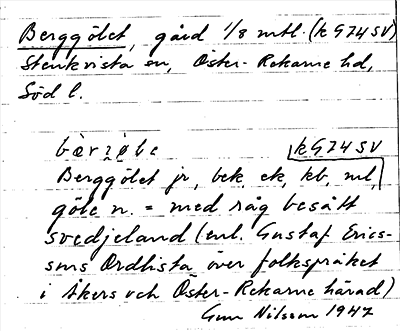 Berggölet, gård 1/8 mtl. (k G74 SV)
Stenkvista sn, Öster-Rekarne hd,
Söd l.
bærjø̀be k G74 SV
Berggölet jr, bek, ek, kb, ml,
göle n. = med råg besått
svedjeland (enl. Gustaf Erics-
sons Ordlista över folkspråket
i Åkers och Öster-Rekarne härad)
Gun Nilsson 1947